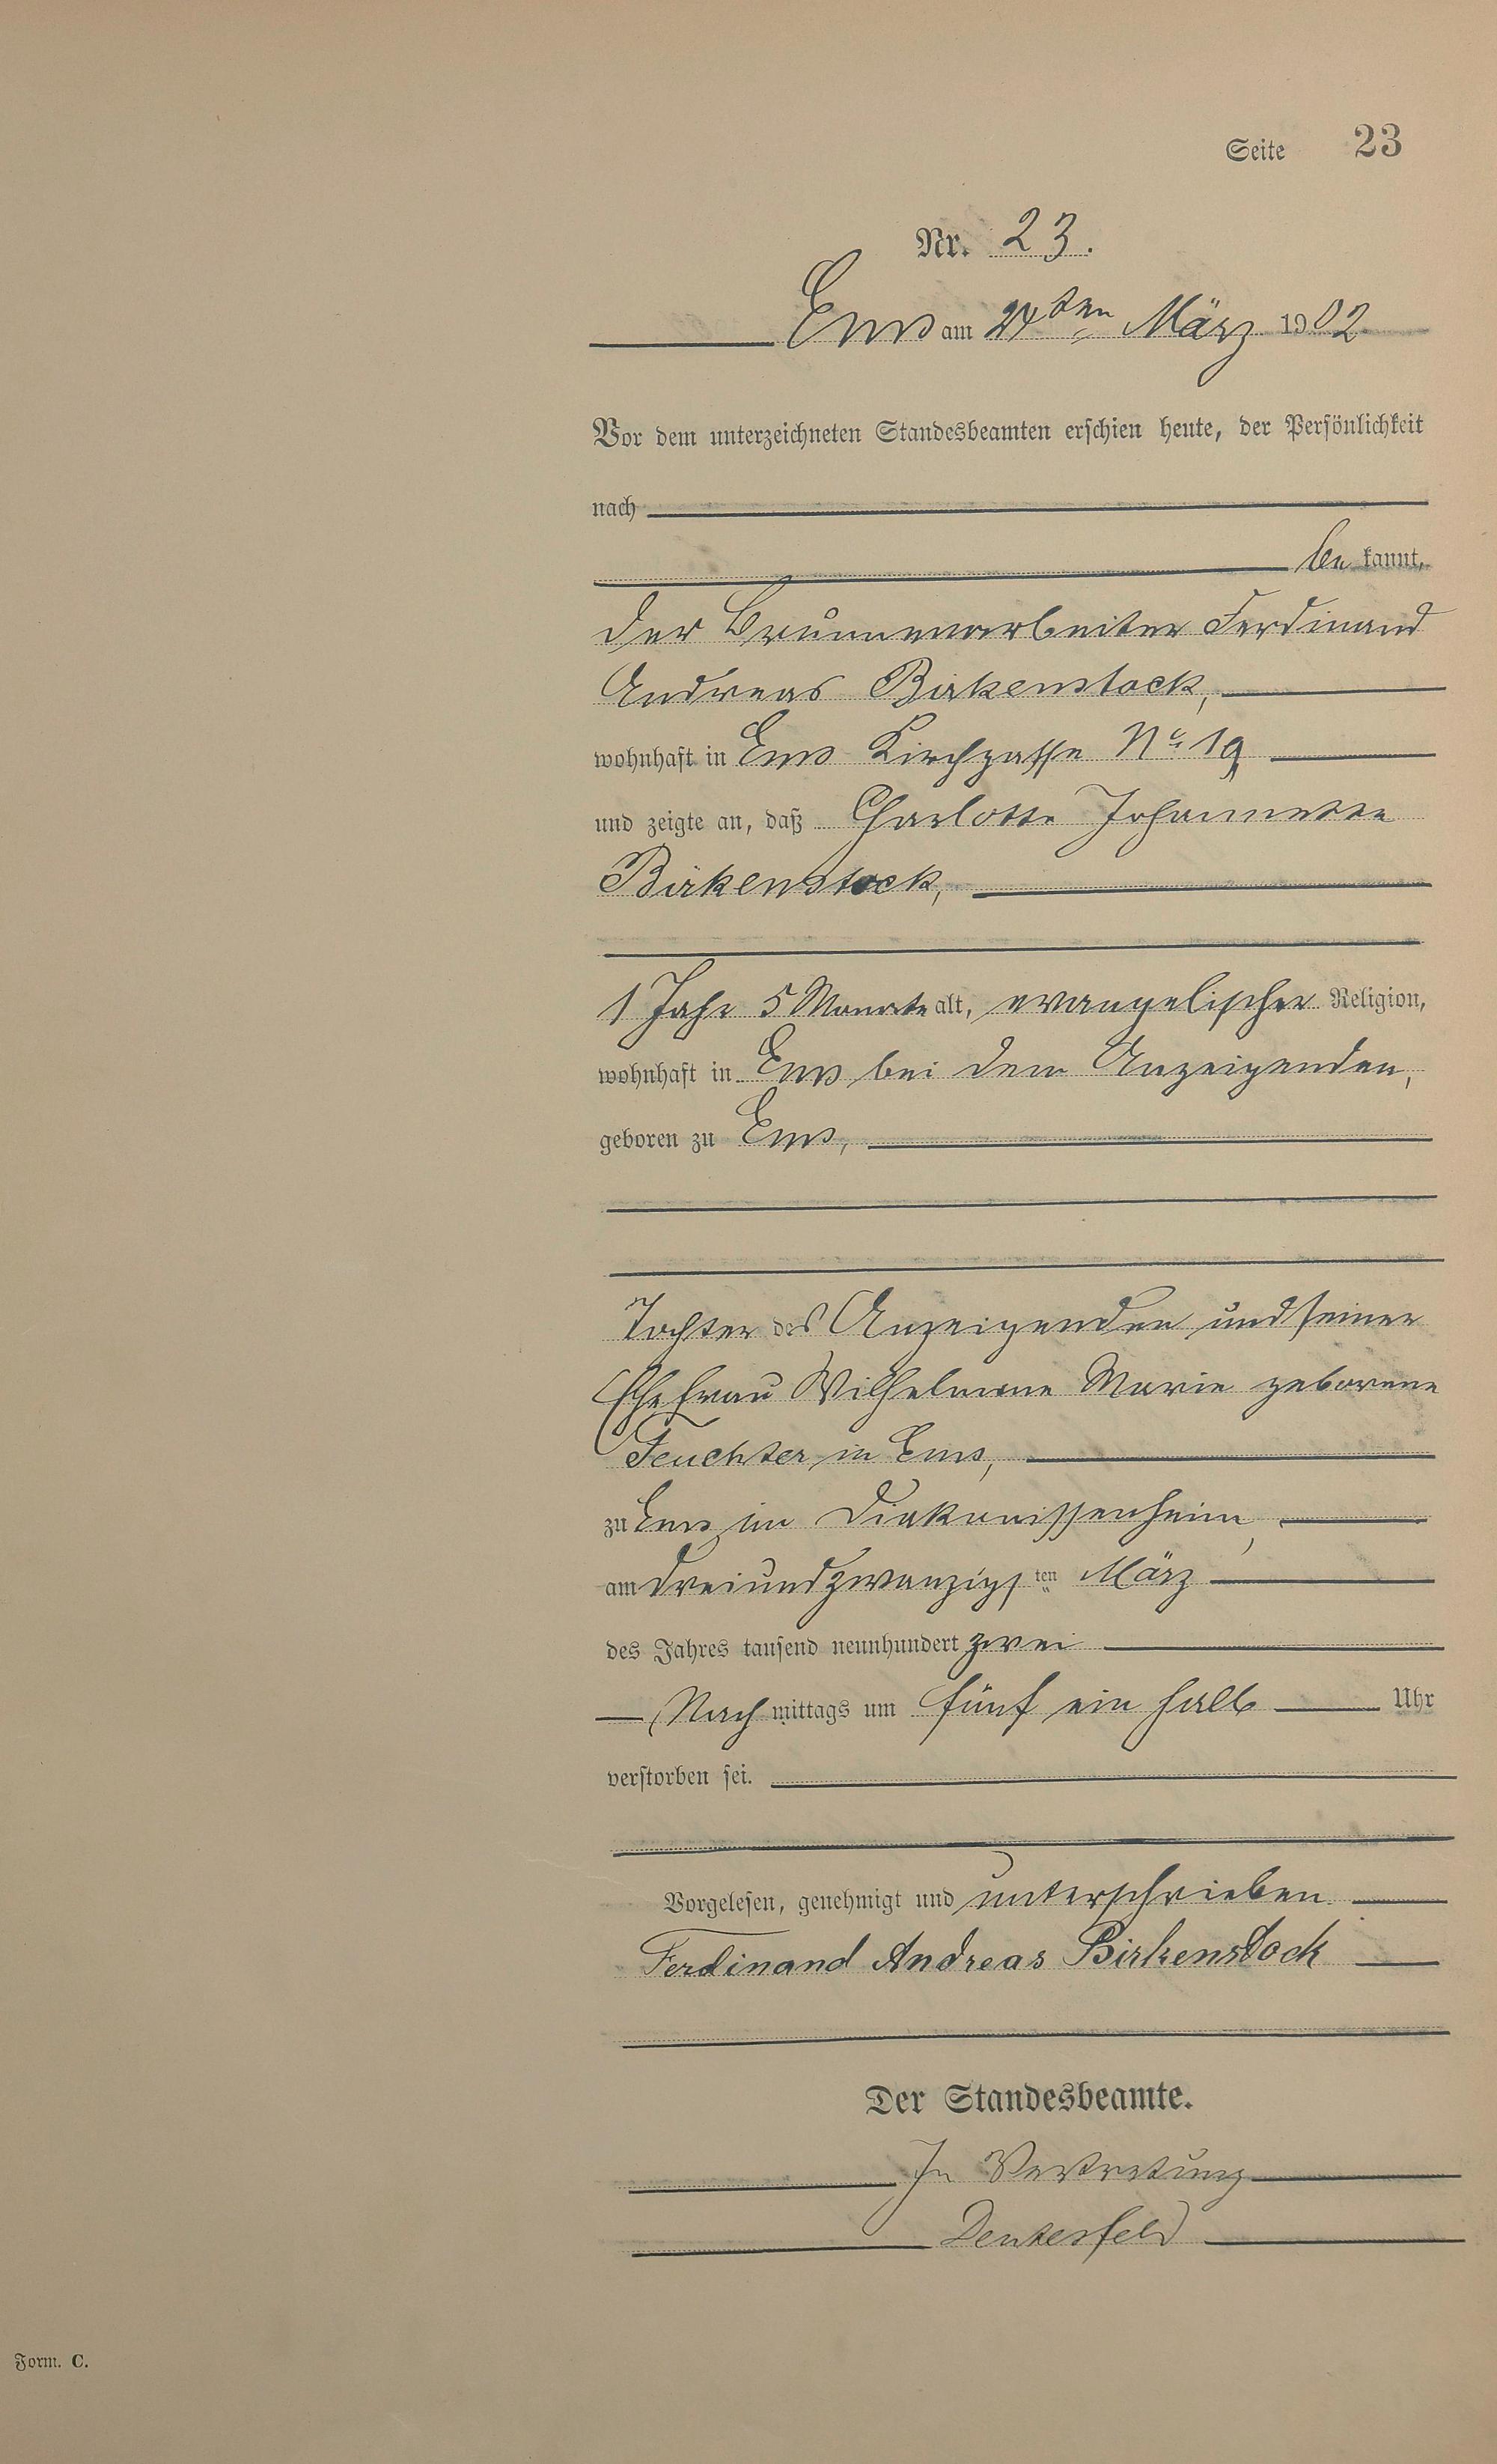 Seite 23
Nr. 23.
Ems am 24ten März 1902
Vor dem unterzeichneten Standesbeamten erschien heute, der Persönlichkeit
nach
be kannt,
der Brunnenarbeiter Ferdinand
Andreas Birkenstock,
wohnhaft in Ems Kirchgasse No 19
und zeigte an, daß Charlotte Johannette
Birkenstock,
1 Jahr 5 Monate alt, evangelischer Religion,
wohnhaft in Ems bei dem Anzeigenden,
geboren zu Ems,
Tochter des Anzeigenden und seiner
Ehefrau Wilhelmine Marie geborene
Feuchter in Ems,
zu Ems im Diakonissenheim,
am dreiundzwanzigsten März
des Jahres tausend neunhundert zwei
Nachmittags um fünf ein halb Uhr
verstorben sei.
Vorgelesen, genehmigt und unterschrieben
Ferdinand Andreas Birkenstock
Der Standesbeamte.
In Vertretung
Form. C.